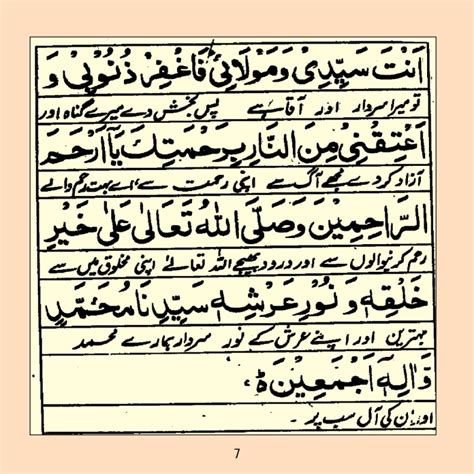 اَنْتَ سَيِّدِىْ وَمَوْلَائِىْ فَاغْفِرْ ذُنُوْبِىْ وَ
تو میرا سردار اور آقا ہے پس بخش دے میرے گناہ اور
اَعْتِقْنِىْ مِنَ النَّارِ بِرَحْمَتِكَ يَآ اَرْحَمَ
آزاد کر دے مجھے آگ سے اپنی رحمت سے، اے بہت رحم والے
الرَّاحِمِيْنَ وَصَلَّى اللّٰهُ تَعَالٰى عَلٰى خَيْرِ
رحم کرنیوالوں سے اور درود بھیجے اللہ تعالےٰ اپنی مخلوق میں سے
خَلْقِهٖ وَ نُوْرِ عَرْشِهٖ سَيِّدِنَا مُحَمَّدٍ
بہترین اور اپنے عرش کے نور سردار ہمارے محمد
وَّاٰلِهٖ اَجْمَعِيْنَ ؕ
اور ان کی آل سب پر ۔
7